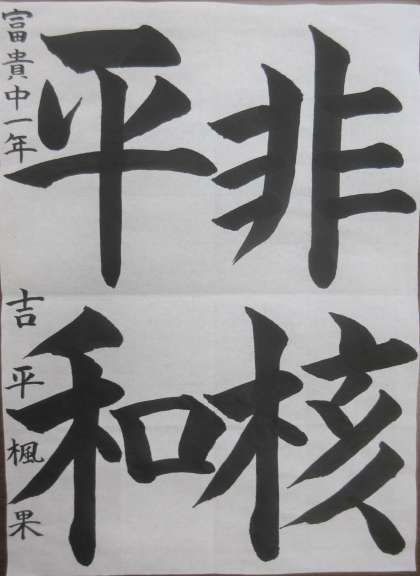 非核
平和
富貴中一年
吉平楓果